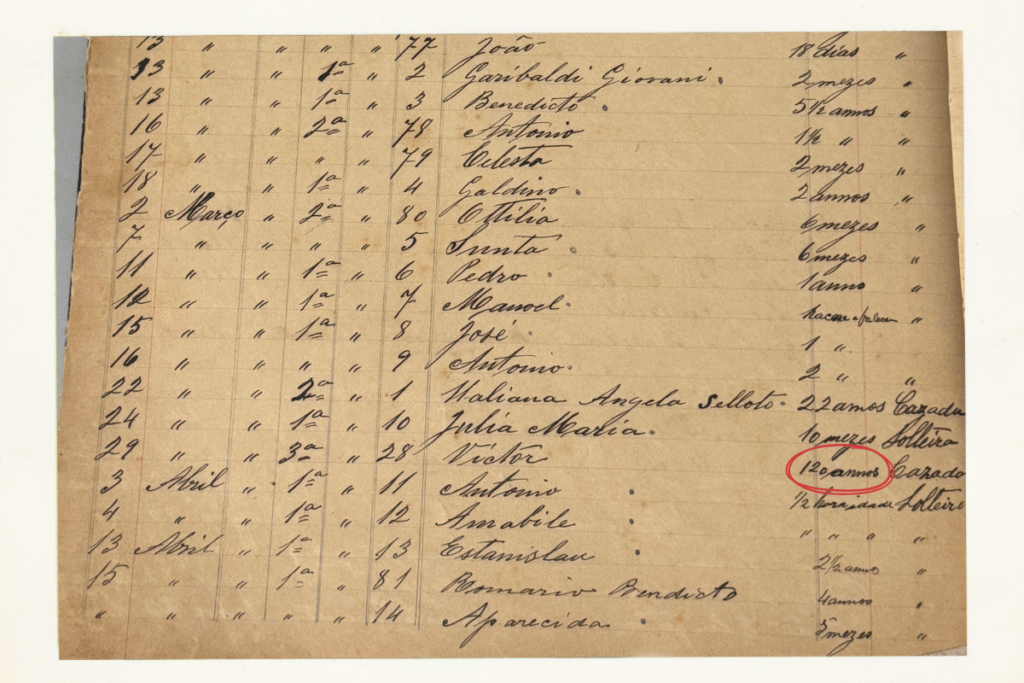 13 " " " " 77 João 18 dias "
13 " " 1ª " 2 Garibaldi Giovani. 2 mezes "
13 " " 1ª " 3 Benedicto. 5 1/2 annos "
16 " " 2ª " 78 Antonio 1 1/2 " "
17 " " " " 79 Celesta 2 mezes "
18 " " 1ª " 4 Galdino. 2 annos "
2 Março " 2ª " 80 Ottilia 6 mezes "
7 " " " " 5 Sunta. 6 mezes "
11 " " 1ª " 6 Pedro. 1 anno "
12 " " 1ª " 7 Manoel. "
15 " " 1ª " 8 José. 1 "
16 " " " " 9 Antonio. 2 " "
22 " " 2ª " 1 Italiana Angela Selloto. 22 annos Cazada
24 " " 1ª " 10 Julia Maria. 10 mezes Solteira
29 " " 3ª " 28 Victor 120 annos Cazado
3 Abril " 1ª " 11 Antonio. 1/2 hora idade Solteiro
4 " " 1ª " 12 Amabile. " " " "
13 Abril " 1ª " 13 Estanislau. 2 1/2 anno "
15 " " 1ª " 81 Romario Bendicto 4 annos "
" " " " " 14 Aparecida. 5 mezes "